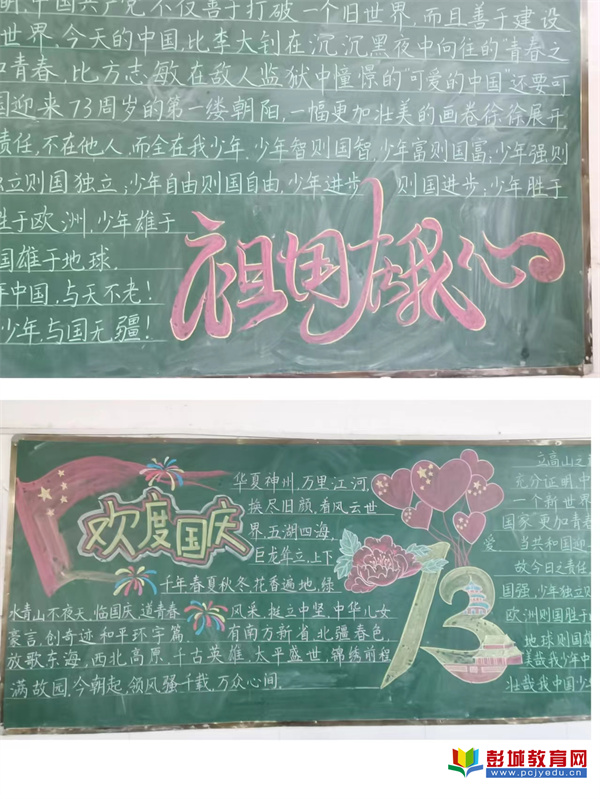 明,中国共产党,不仅善于打破一个旧世界,而且善于建设
世界,今天的中国,比李大钊在沉沉黑夜中向往的“青春之
和青春,比方志敏在敌人监狱中憧憬的“可爱的中国”还要可
国迎来73周岁的第一缕朝阳,一幅更加壮美的画卷徐徐展开
责任,不在他人,而全在我少年.少年智则国智,少年富则国富;少年强则
独立则国独立;少年自由则国自由,少年进步 则国进步;少年胜于
胜于欧洲,少年雄于
国雄于地球.
年中国,与天不老!
少年,与国无疆!
祖国在我心
欢度国庆
华夏神州,万里江河,
换尽旧颜,看风云世
界.五湖四海,
巨龙耸立,上下
千年春夏秋冬.花香遍地,绿
水青山不夜天.临国庆,道青春
风采,挺立中坚,中华儿女
豪言,创奇迹和平环宇篇
有南方新省,北疆春色,
放歌东海,西北高原.千古英雄,太平盛世,锦绣前程
满故园.今朝起,领风强千载,万众心间.
73
爱
立高山之
充分证明,中
一个新世界
国家更加青春
当共和国迎
故今日之责任
国强,少年独立则
欧洲则国胜于
地球则国雄
美哉我少年中
壮哉我中国少年
彭城教育网
www.pcjyedu.cn